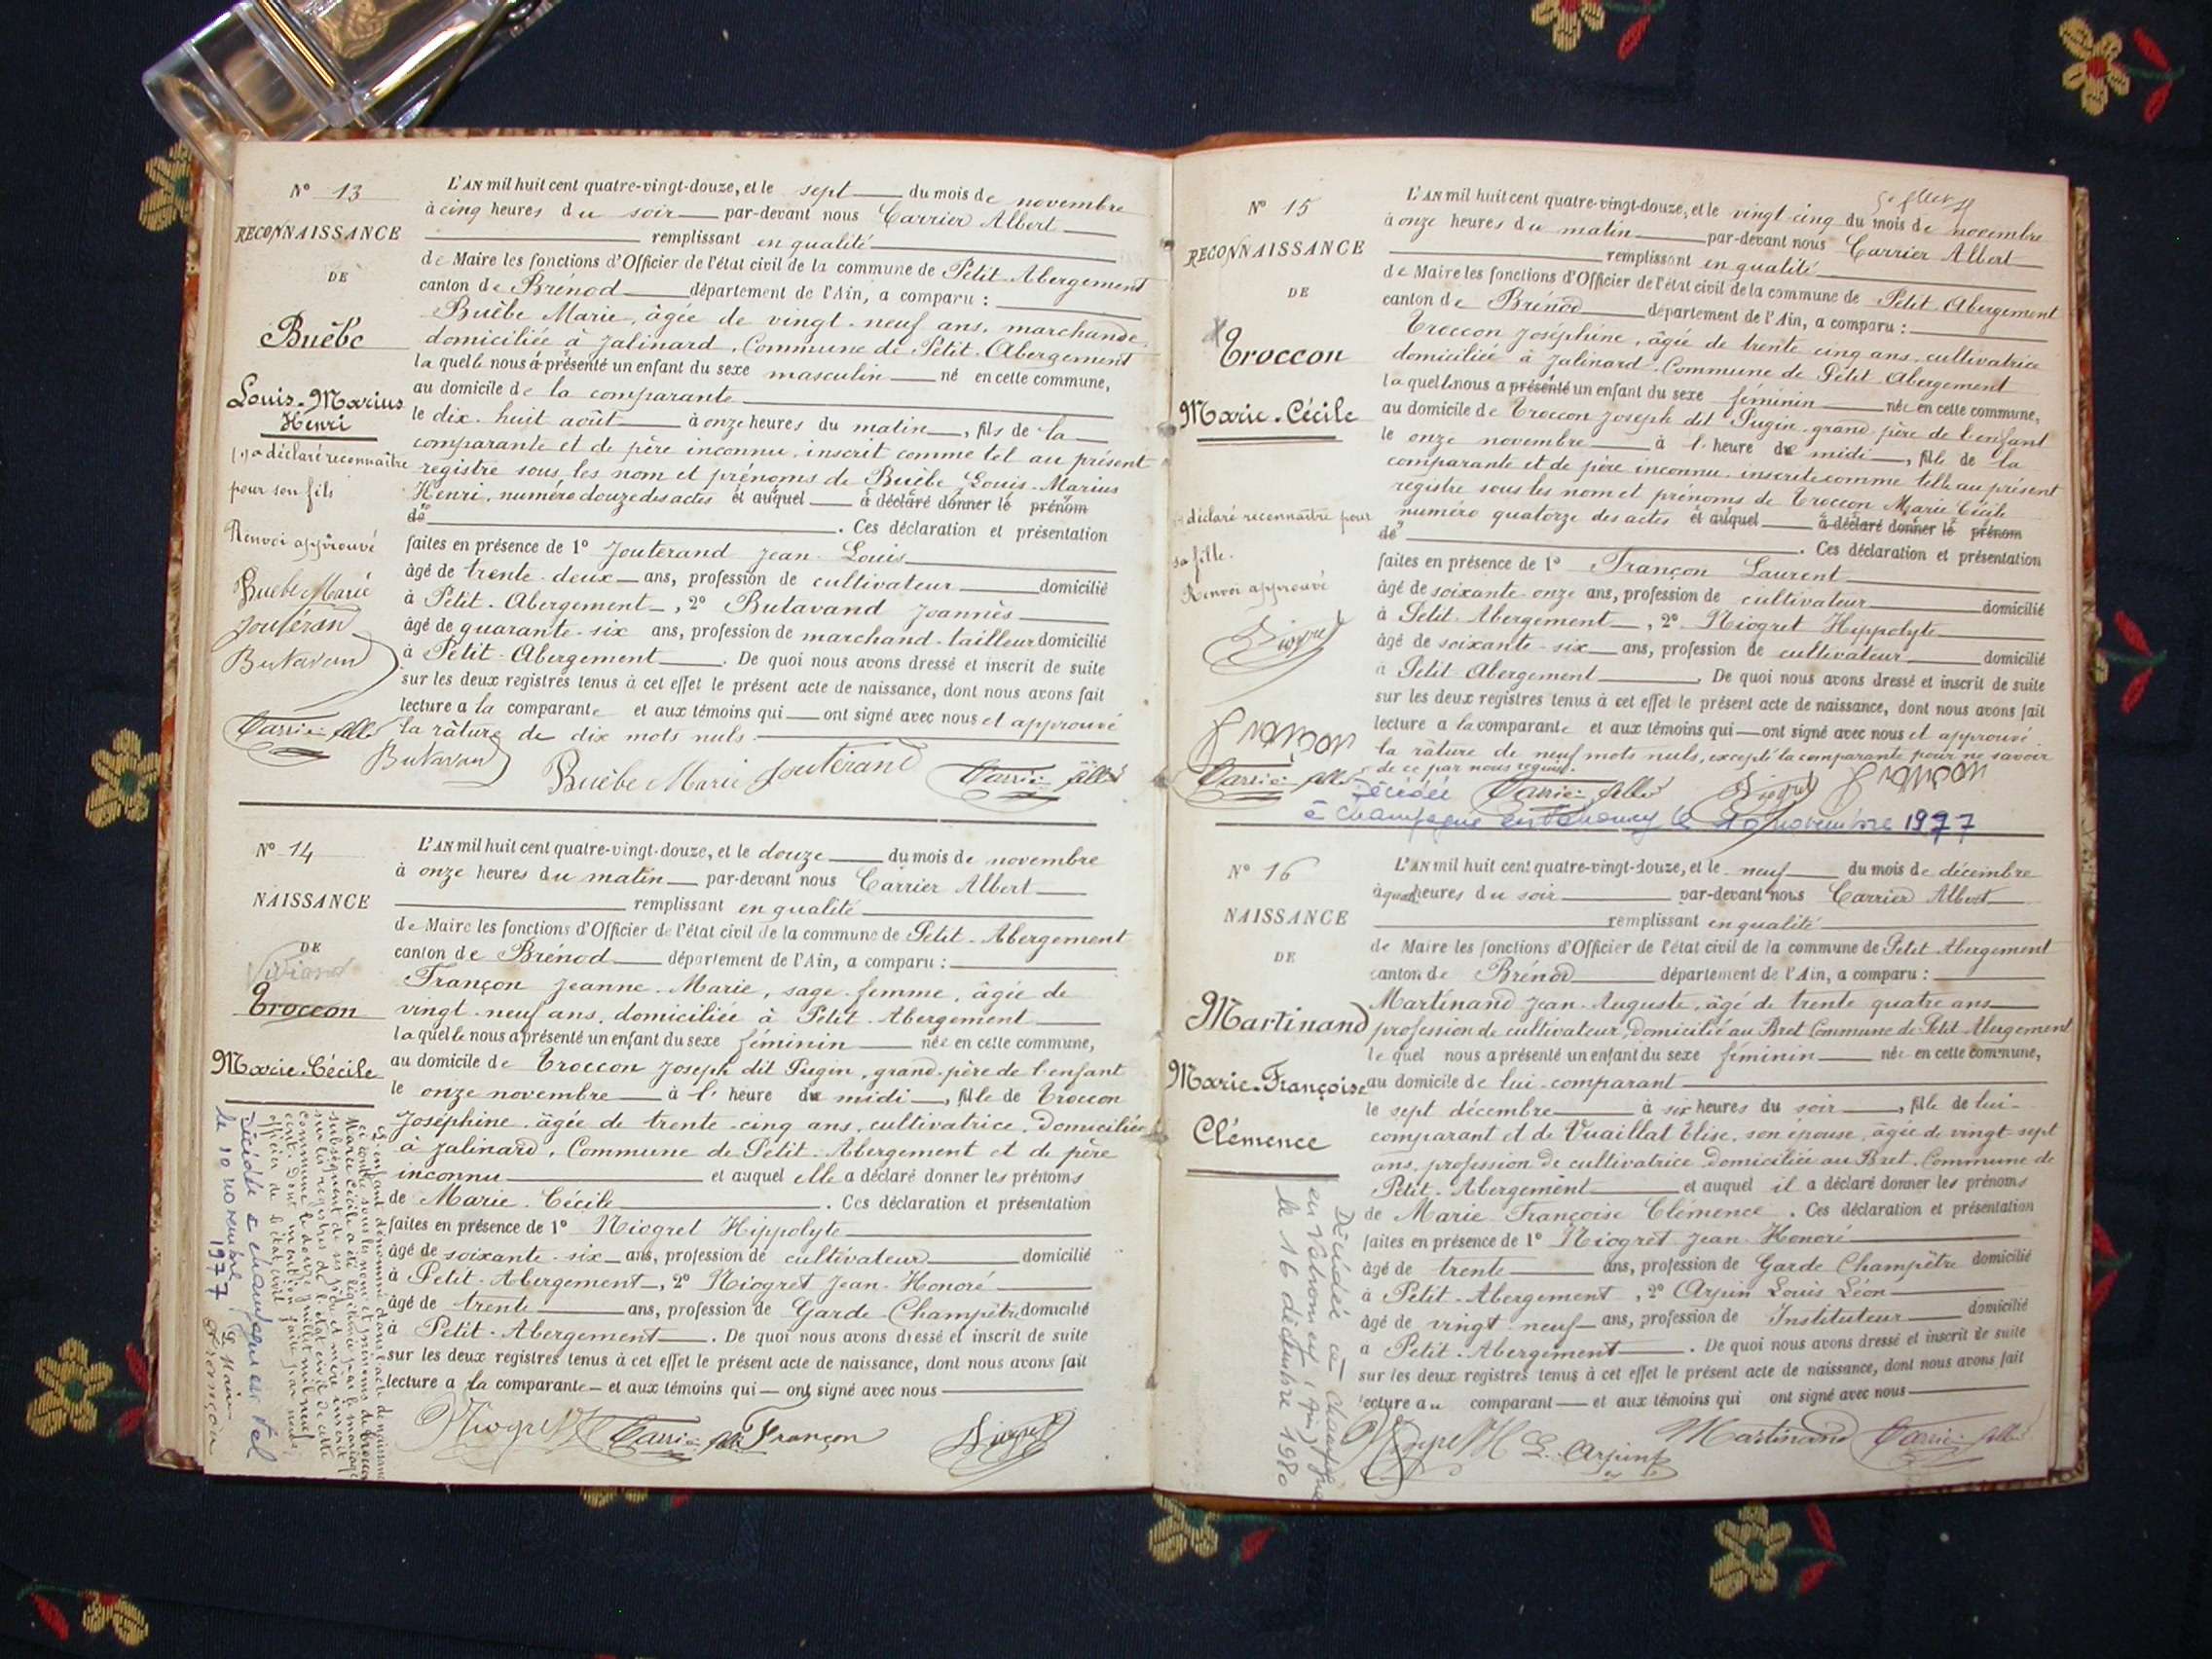 N° 13
RECONNAISSANCE
DE
Buèbe
Louis-Marius
Henri
a déclaré reconnaître
pour son fils
Renvoi approuvé
Buèbe Marie
Joutérand
Butavand
L'AN mil huit cent quatre-vingt-douze, et le sept du mois de novembre
à cinq heures du soir par-devant nous Carrier Albert
remplissant en qualité
de Maire les fonctions d'Officier de l'état civil de la commune de Petit-Abergement
canton de Brénod département de l'Ain, a comparu :
Buèbe Marie, âgée de vingt-neuf ans, marchande,
domiciliée à Jalinard, Commune de Petit-Abergement
laquelle nous a présenté un enfant du sexe masculin né en cette commune,
au domicile de la comparante
le dix-huit août à onze heures du matin, fils de la
comparante et de père inconnu, inscrit comme tel au présent
registre sous les nom et prénoms de Buèbe Louis-Marius
Henri, numéro douze des actes et auquel a déclaré donner le prénom
de . Ces déclaration et présentation
faites en présence de 1° Jouterand Jean-Louis
âgé de trente-deux ans, profession de cultivateur domicilié
à Petit-Abergement, 2° Butavand Joannès
âgé de quarante-six ans, profession de marchand-tailleur domicilié
à Petit-Abergement. De quoi nous avons dressé et inscrit de suite
sur les deux registres tenus à cet effet le présent acte de naissance, dont nous avons fait
lecture a la comparante et aux témoins qui ont signé avec nous et approuvé
la râture de dix mots nuls.
Butavand Buèbe Marie Joutérand
N° 14
NAISSANCE
DE
Troccon
Marie-Cécile
L'AN mil huit cent quatre-vingt-douze, et le douze du mois de novembre
à onze heures du matin par-devant nous Carrier Albert
remplissant en qualité
de Maire les fonctions d'Officier de l'état civil de la commune de Petit-Abergement
canton de Brénod département de l'Ain, a comparu :
Françon Jeanne-Marie, sage-femme, âgée de
vingt-neuf ans, domiciliée à Petit-Abergement
laquelle nous a présenté un enfant du sexe féminin née en cette commune,
au domicile de Troccon Joseph dit Pugin, grand-père de l'enfant
le onze novembre à l' heure de midi, fille de Troccon
Joséphine, âgée de trente-cinq ans, cultivatrice, domiciliée
à Jalinard, Commune de Petit-Abergement et de père
inconnu et auquel elle a déclaré donner les prénoms
de Marie-Cécile . Ces déclaration et présentation
faites en présence de 1° Niogret Hippolyte
âgé de soixante-six ans, profession de cultivateur domicilié
à Petit-Abergement, 2° Niogret Jean-Honoré
âgé de trente ans, profession de Garde-Champêtre domicilié
à Petit-Abergement. De quoi nous avons dressé et inscrit de suite
sur les deux registres tenus à cet effet le présent acte de naissance, dont nous avons fait
lecture a la comparante et aux témoins qui ont signé avec nous
Niogret Françon
L'enfant dénommée dans l'acte de naissance
ci contre sous les nom et prénoms de Troccon
Marie Cécile a été légitimée par le mariage
subséquent de ses père et mère inscrit
sur les registres de l'état civil de cette
commune le douze juillet mil neuf
cent. Dont mention faite par nous,
officier de l'état civil
Le Maire
Françon
Décédée à Champagne en Val
le 10 novembre 1977
N° 15
RECONNAISSANCE
DE
Troccon
Marie-Cécile
déclaré reconnaître pour
sa fille.
Renvoi approuvé
Françon
L'AN mil huit cent quatre-vingt-douze, et le vingt cinq du mois de novembre
à onze heures du matin par-devant nous Carrier Albert
remplissant en qualité
de Maire les fonctions d'Officier de l'état civil de la commune de Petit-Abergement
canton de Brénod département de l'Ain, a comparu :
Troccon Joséphine, âgée de trente cinq ans, cultivatrice
domiciliée à Jalinard, Commune de Petit-Abergement
laquelle nous a présenté un enfant du sexe féminin née en cette commune,
au domicile de Troccon Joseph dit Pugin, grand-père de l'enfant
le onze novembre à l' heure de midi, fille de la
comparante et de père inconnu, inscrite comme telle au présent
registre sous les nom et prénoms de Troccon Marie Cécile
numéro quatorze des actes et auquel a déclaré donner le prénom
de . Ces déclaration et présentation
faites en présence de 1° Françon Laurent
âgé de soixante-onze ans, profession de cultivateur domicilié
à Petit-Abergement, 2° Niogret Hippolyte
âgé de soixante-six ans, profession de cultivateur domicilié
à Petit-Abergement. De quoi nous avons dressé et inscrit de suite
sur les deux registres tenus à cet effet le présent acte de naissance, dont nous avons fait
lecture a la comparante et aux témoins qui ont signé avec nous et approuvé
la râture de neuf mots nuls, excepté la comparante pour ne savoir
de ce par nous requise.
Françon
Décédée
à Champagne en Valromey le 10 novembre 1977
N° 16
NAISSANCE
DE
Martinand
Marie-Françoise
Clémence
L'AN mil huit cent quatre-vingt-douze, et le neuf du mois de décembre
à quatre heures du soir par-devant nous Carrier Albert
remplissant en qualité
de Maire les fonctions d'Officier de l'état civil de la commune de Petit-Abergement
canton de Brénod département de l'Ain, a comparu :
Martinand Jean-Auguste, âgé de trente quatre ans
profession de cultivateur, domicilié au Bret, Commune de Petit-Abergement
lequel nous a présenté un enfant du sexe féminin née en cette commune,
au domicile de lui-comparant
le sept décembre à six heures du soir, fille de lui-
comparant et de Vuaillat Elise, son épouse, âgée de vingt-sept
ans, profession de cultivatrice, domiciliée au Bret, Commune de
Petit-Abergement et auquel il a déclaré donner les prénoms
de Marie Françoise Clémence . Ces déclaration et présentation
faites en présence de 1° Niogret Jean Honoré
âgé de trente ans, profession de Garde Champêtre domicilié
à Petit-Abergement, 2° Arpin Louis Léon
âgé de vingt-neuf ans, profession de Instituteur domicilié
a Petit-Abergement. De quoi nous avons dressé et inscrit de suite
sur les deux registres tenus à cet effet le présent acte de naissance, dont nous avons fait
lecture au comparant et aux témoins qui ont signé avec nous
L. Arpin Martinand
Décédée à Champagne
en Valromey (Ain)
le 16 décembre 1980